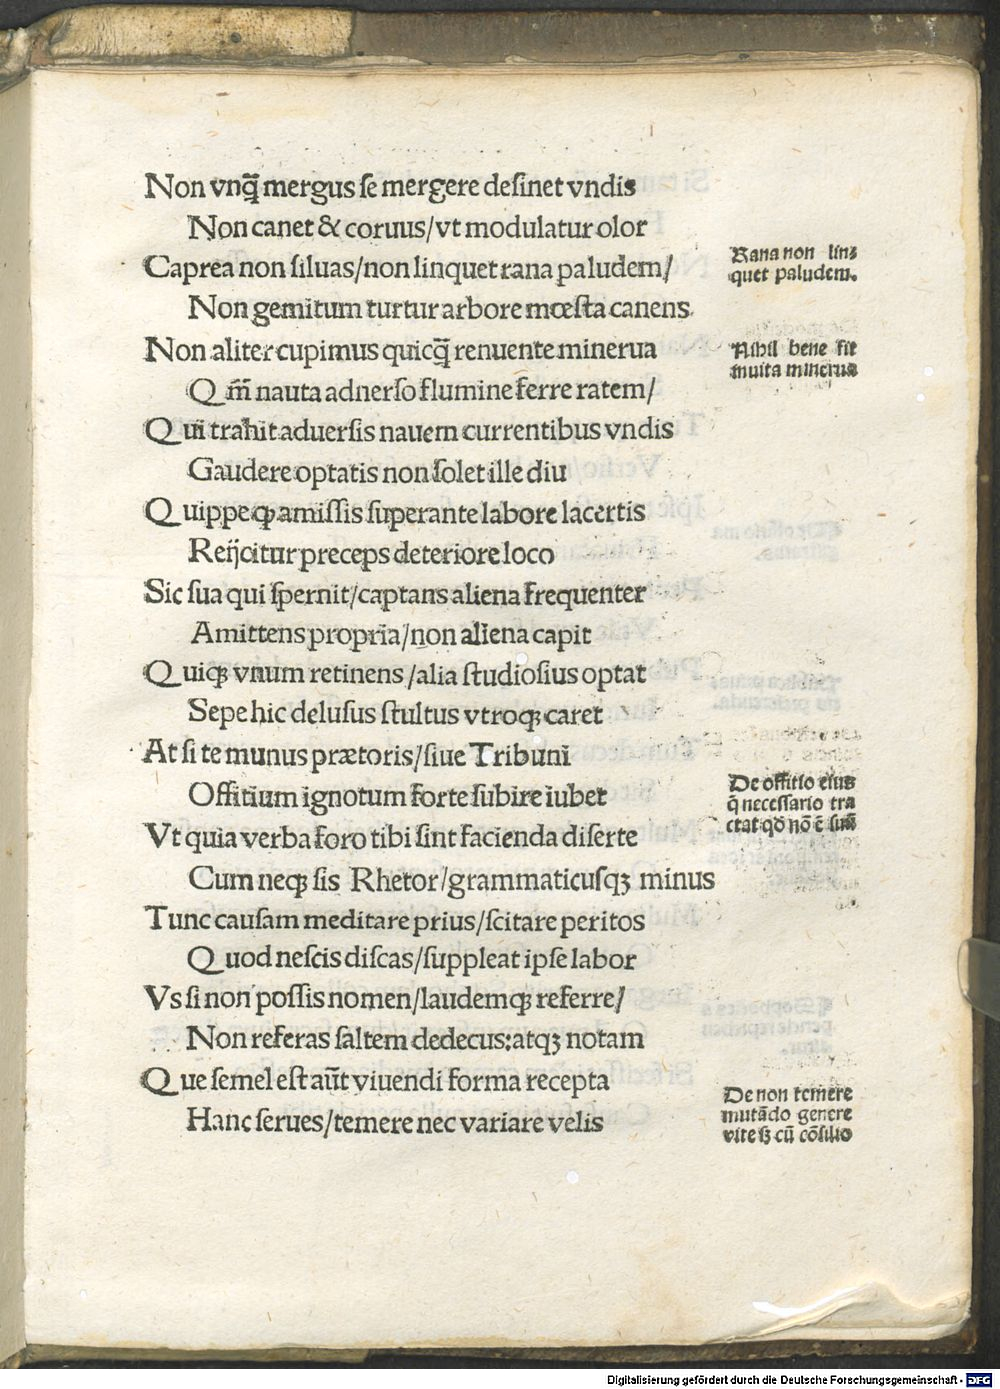 Non vnq̃ mergus ſe mergere deſinet vndis
Non canet & coruus/vt modulatur olor
Caprea non ſiluas/non linquet rana paludem/
Non gemitum turtur arbore mœſta canens
Non aliter cupimus quicq̃ renuente minerua
Qm̃ nauta adnerſo flumine ferre ratem/
Qui trahit aduerſis nauem currentibus vndis
Gaudere optatis non ſolet ille diu
Quippe ꝙ amiſſis ſuperante labore lacertis
Reijcitur preceps deteriore loco
Sic ſua qui ſpernit/captans aliena frequenter
Amittens propria/non aliena capit
Quiqꝫ vnum retinens/alia ſtudioſius optat
Sepe hic deluſus ſtultus vtroqꝫ caret
At ſi te munus prætoris/ſiue Tribuni
Offitium ignotum forte ſubire iubet
Vt quia verba foro tibi ſint facienda diſerte
Cum neqꝫ ſis Rhetor/grammaticuſqꝫ minus
Tunc cauſam meditare prius/ſcitare peritos
Quod neſcis diſcas/ſuppleat ipſe labor
Vs ſi non poſſis nomen/laudemqꝫ referre/
Non referas ſaltem dedecus:atqꝫ notam
Que ſemel eſt aũt viuendi forma recepta
Hanc ſerues/temere nec variare velis
Rana non lin⸗
quet paludem.
Nihil bene fit
inuita minerua
De offitio eius
q̃ neceſſario tra
ctat qđ nõ ẽ ſuũ
De non temere
mutãdo genere
vite ſꝫ cũ cõſilio
Digitalisierung gefördert durch die Deutsche Forschungsgemeinschaft - DFG